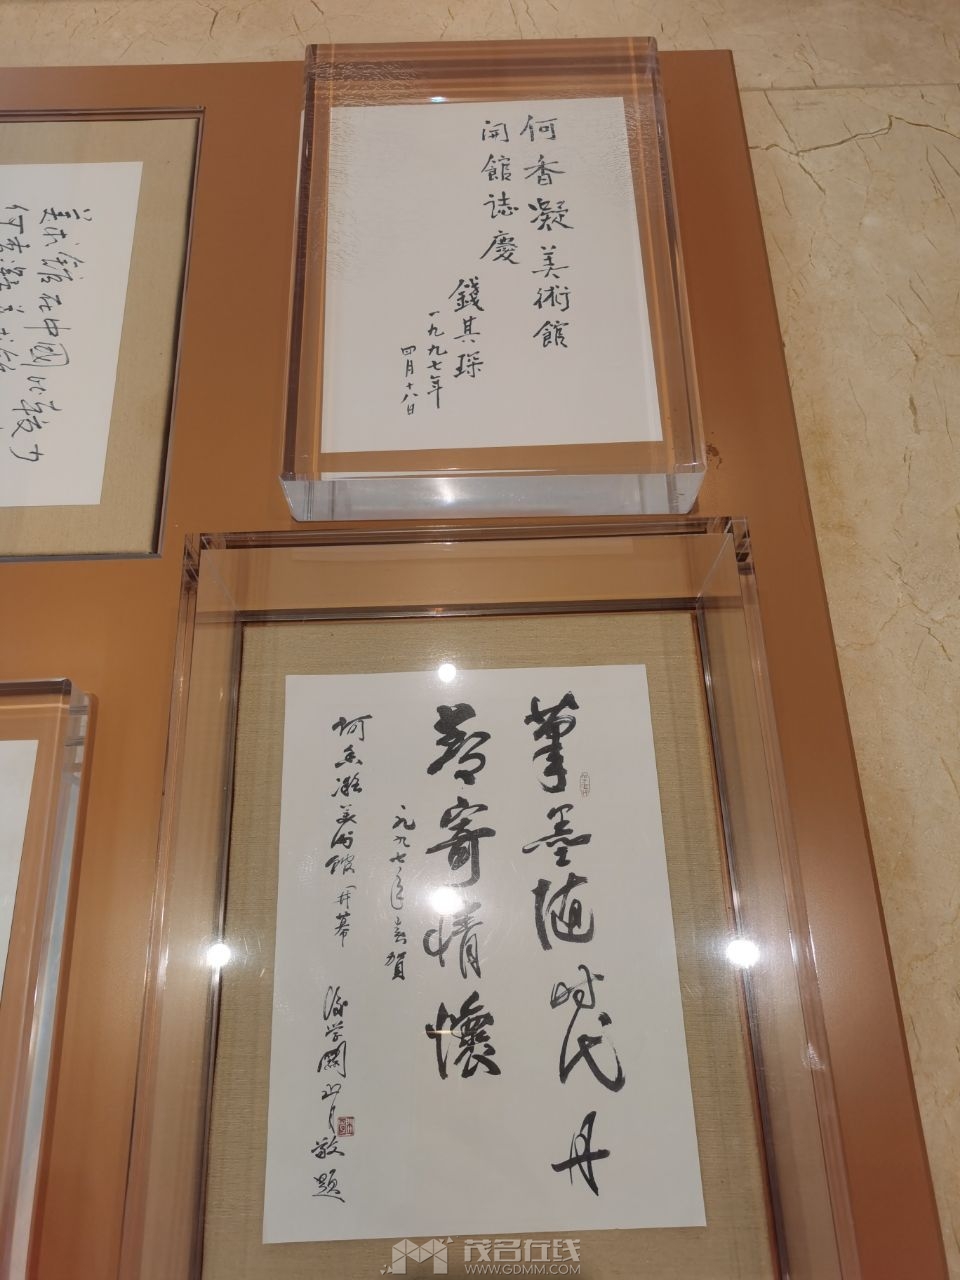 何香凝美術館
開館誌慶
錢其琛
一九九七年
四月十八日
美术館在中國比較力
何香凝美术館
筆墨随时代丹
青寄情懷
一九九七年喜賀
何香凝美術館開幕
後学關山月敬題
茂名在线
WWW.GDMM.COM